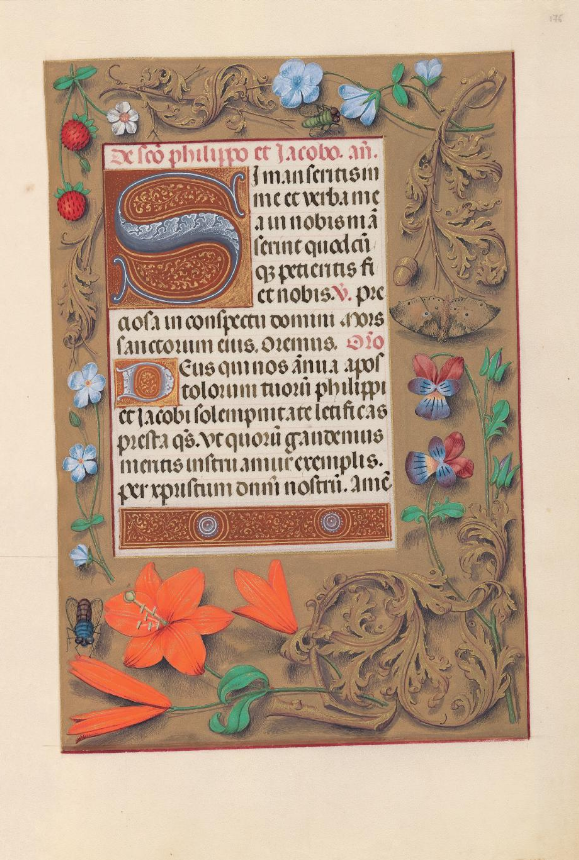 176
De scō philippo et Jacobo. añ.
Si manseritis in
me et verba me
a in nobis mā
serint quodcū
qȝ petieritis fi
et nobis. V̄. Pre
ciosa in conspectu domini Mors
sanctorum eius. Oremus. Orō
Deus qui nos ānua apos
tolorum tuorū philippi
et Jacobi solempnitate letificas
presta qs̄. vt quorū gaudemus
meritis instruamur exemplis.
per xpristum dnm̄ nostrū. Amē